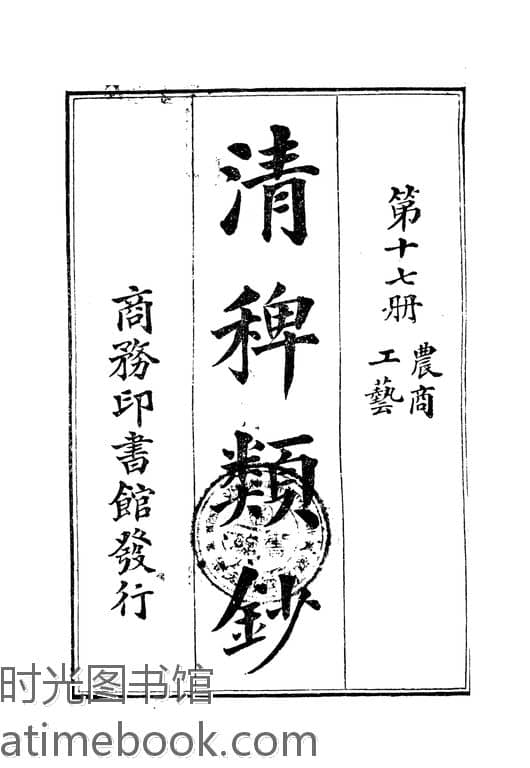 第十七册
農商
工藝
清稗類鈔
商務印書館發行
时光图书馆
atimebook.com